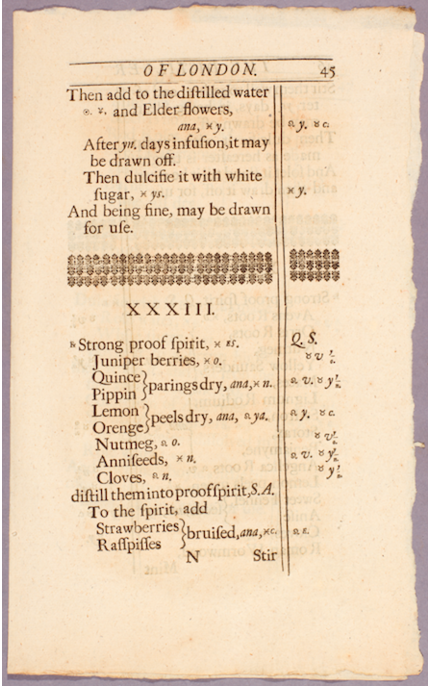 OF LONDON. 45
Then add to the diſtilled water
and Elder flowers,
ana, ʒ y. y. c.
After yıı. days infuſion, it may
be drawn off.
Then dulcifie it with white
ſugar, ys. y.
And being fine, may be drawn
for uſe.
XXXIII.
Strong proof ſpirit, Q. S.
Juniper berries, o.
Quince
Pippin } parings dry, ana, n.
Lemon
Orenge } peels dry, ana, ya. y. c.
Nutmeg, o.
Anniſeeds, n.
Cloves, n.
diſtill them into proof ſpirit, S.A.
To the ſpirit, add
Strawberries
Raſſpiſſes } bruiſed, ana, c.
N Stir